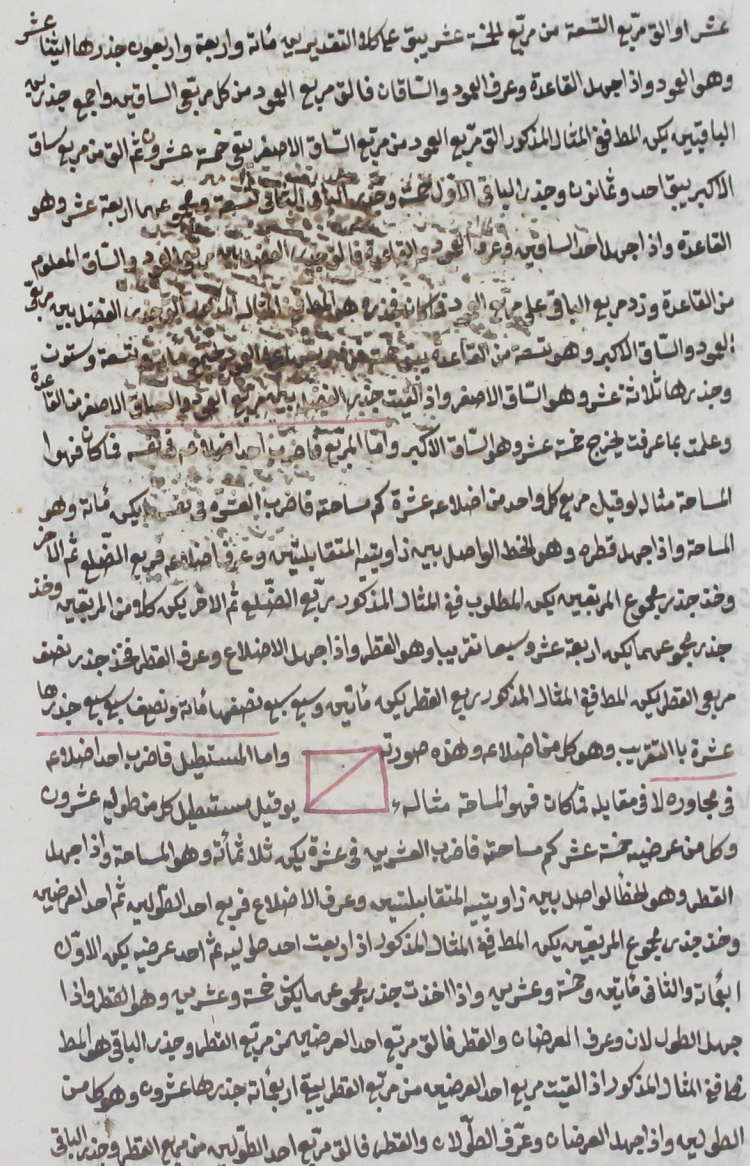 عشر او الق مربع التسعة من مربع الخمسة عشر يبق على كلا التقديرين مائة واربعة واربعون جذرها اثنا عشر
وهو العمود واذا جهل القاعدة وعرف العمود والساقان فالق مربع العمود من كل مربعي الساقين واجمع جذرين
الباقيين يكن المط ففي المثال المذكور الق مربع العمود من مربع الساق الاصغر يبق خمسة عشرون ثم الق من مربع ساق
الاكبر يبق احد وثمانون وجذر الباقي الاول خمسة وجذر الباقي الثاني تسعة ومجموعهما اربعة عشر وهو
القاعدة واذا جهل احد الساقين وعرف العمود والقاعدة فالق جذر الفضل بين مربعي العمود والساق المعلوم
من القاعدة وزد مربع الباقي على مربع العمود فما كان فجذره هو المط ففي المثال المذكور الق جذر الفضل بين مربعي
العمود والساق الاكبر وهو تسعة من القاعدة يبقى خمسة مائة وتسعة وستون
وجذرها ثلاثة عشر وهو الساق الاصغر واذا القيت جذر الفضل بين مربع العمود والساق الاصغر من القاعدة
وعلمت بما عرفت يخرج خمسة عشر وهو الساق الاكبر واما المربع فاضرب احد اضلاعه في نفسه فما كان فهوا
المساحة مثاله لوقيل مربع كل واحد من اضلاعه عشرة كم مساحته فاضرب العشرة في نفسها يكن مائة وهو
المساحة واذا جهل قطره وهو الخط الواصل بين زاويتيه المتقابلتين وعرف اضلاعه فربع الضلع ثم الاخر
وخذ جذر مجموع المربعين يكن المطلوب ففي المثال المذكور مربع الضلع ثم الاخر يكن كلا من المربعين وخذ
جذر مجموعهما يكن اربعة عشر وسبعا تقريبا وهو القطر واذا جهل الاضلاع وعرف القطر فخذ جذر نصف
مربع القطر يكن المط ففي المثال المذكور ربع القطر يكن مائتين وسبع سبع نصفها مائة ونصف سبع سبع جذرها
عشرة با التقريب وهو كل من اضلاعه وهذه صورته واما المستطيل فاضرب احد اضلاعه
في مجاوره لا في مقابله فما كان فهو المساحة مثاله لوقيل مستطيل كل من طوليه عشرون
وكل من عرضيه خمسة عشر كم مساحته فاضرب العشرين في عشرة يكن ثلاثمائة وهو المساحة واذا جهل
القطر وهو الخط الواصل بين زاويتيه المتقابلتين وعرف الاضلاع فربع احد الطولين ثم احد العرضين
وخذ جذر مجموع المربعين يكن المط ففي المثال المذكور اذا ربعت احد طوليه ثم احد عرضيه يكن الاول
اربعمائة والثاني مائتين وخمسة وعشرين واذا اخذت جذر مجموعهما يكن خمسة وعشرين وهو القطر واذا
جهل الطولان وعرف العرضان والقطر فالق مربع احد العرضين من مربع القطر وجذر الباقي هو المط
ففي المثال المذكور اذا القيت مربع احد العرضين من مربع القطر يبق اربعمائة جذرها عشرون وهو كل من
الطولين واذا جهل العرضان وعرف الطولان والقطر فالق مربع احد الطولين من مربع القطر وجذر الباقي